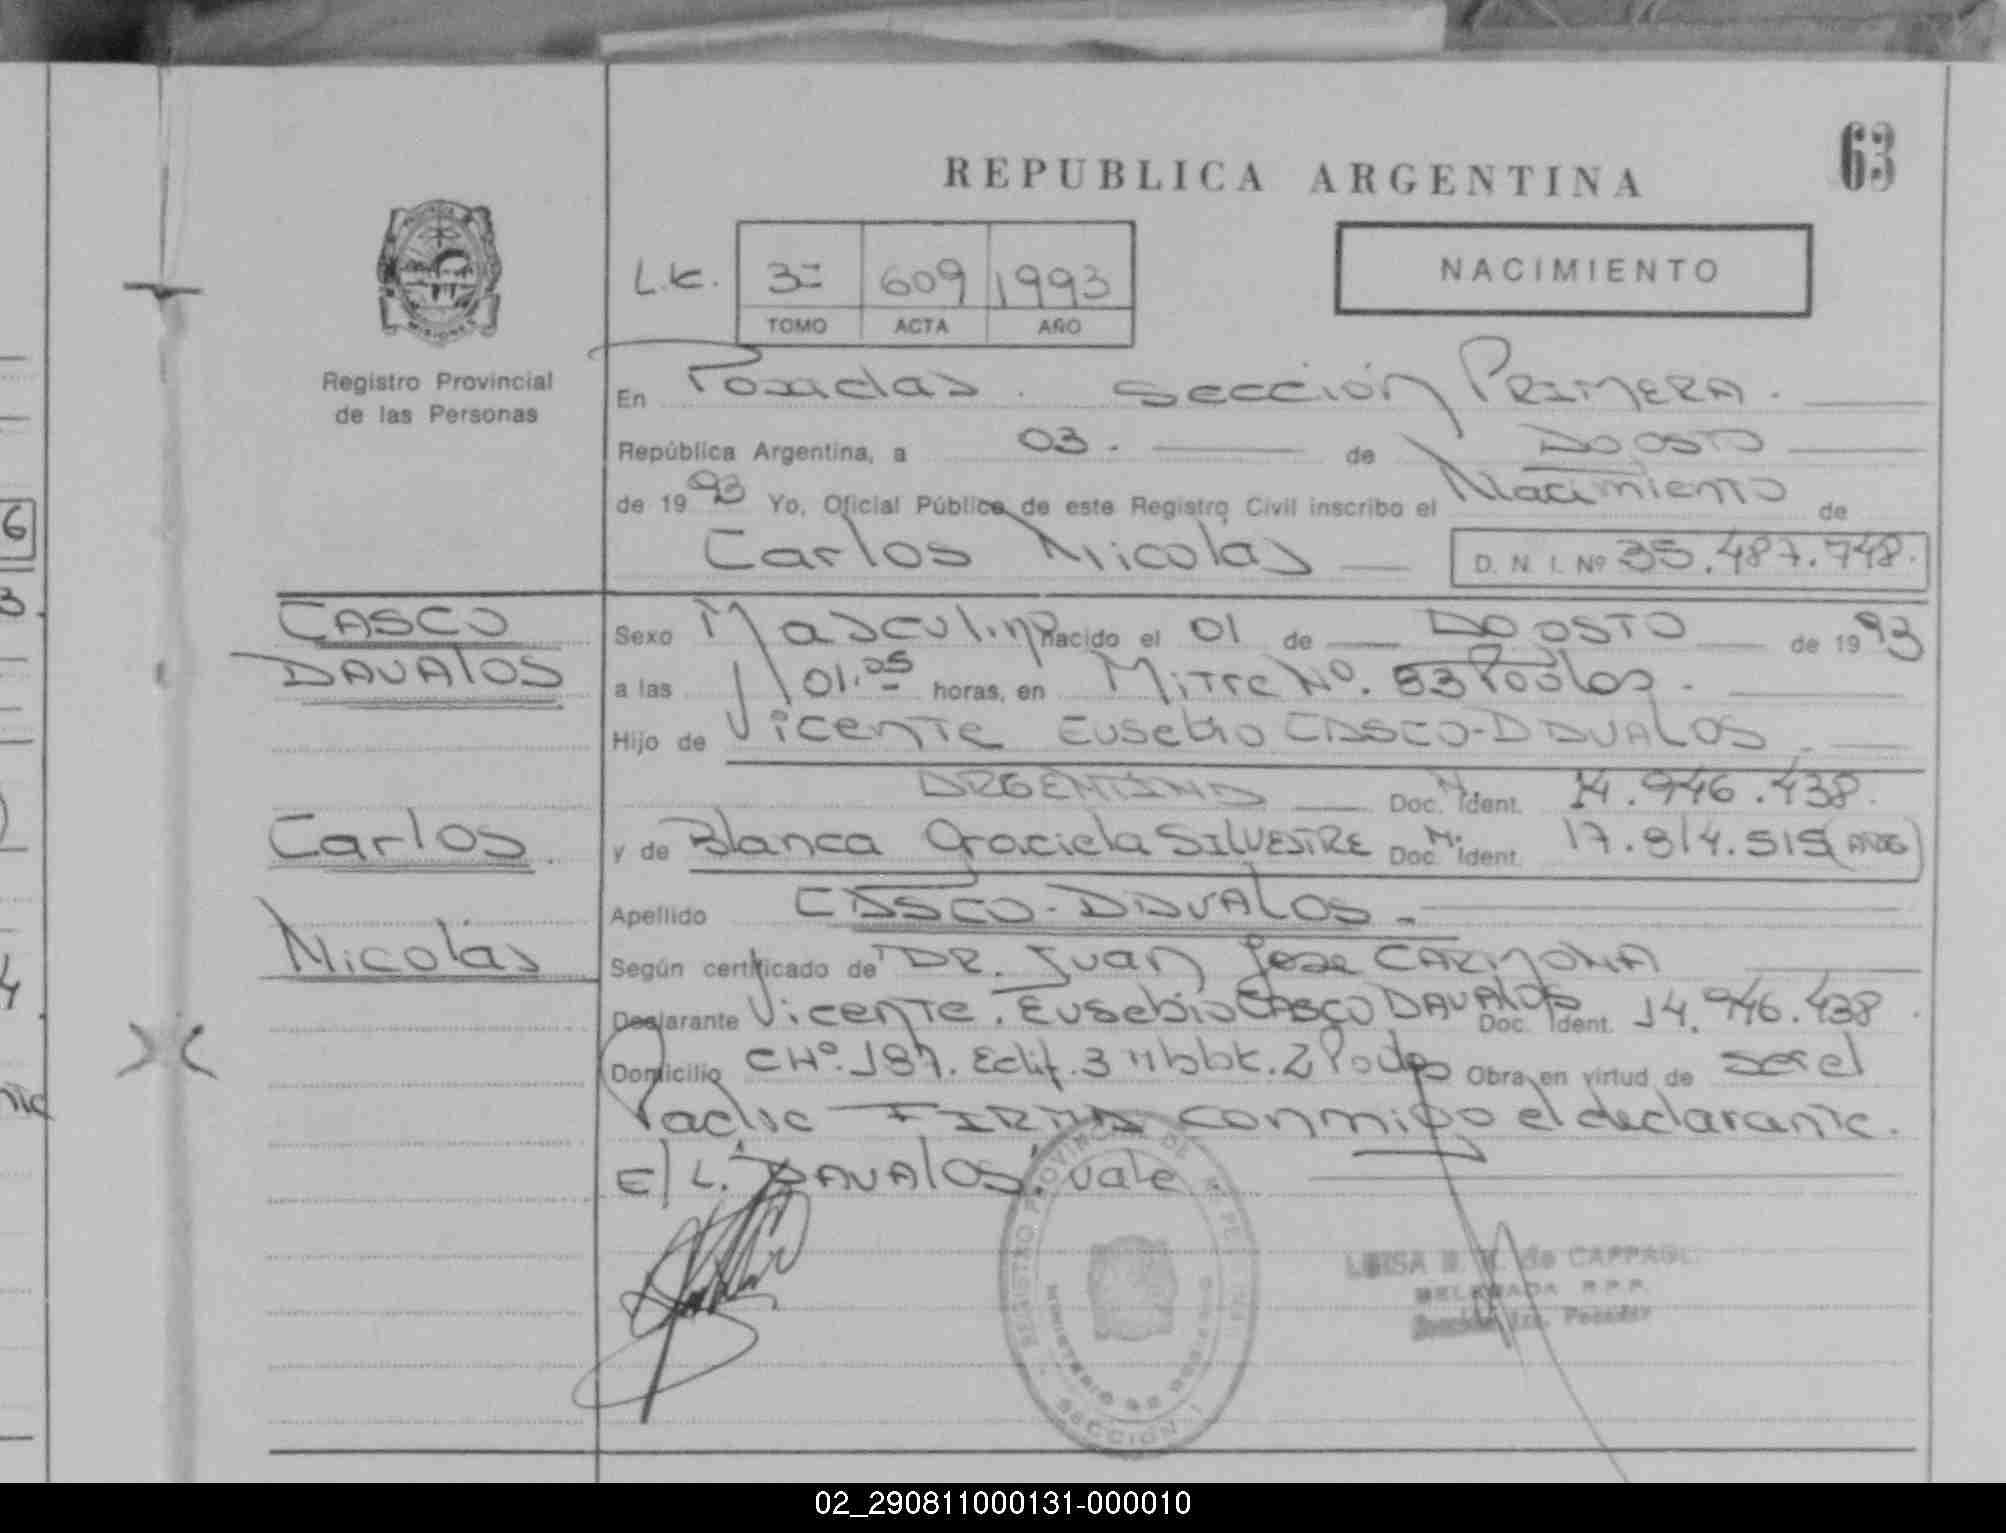 63
REPUBLICA ARGENTINA
L.C. 3º 609 1993
TOMO ACTA AÑO
NACIMIENTO
MISIONES
Registro Provincial
de las Personas
En Posadas. Sección PRIMERA.
República Argentina, a 03. de AGOSTO
de 1993 Yo, Oficial Público de este Registro Civil inscribo el Nacimiento de
Carlos Nicolás D. N. I. Nº 35.487.748.
CASCO
DAVALOS
Carlos
Nicolás
Sexo Masculino nacido el 01 de AGOSTO de 1993
a las 01.05 horas, en Mitre Nº. 83 Posdas.
Hijo de Vicente Eusebio CASCO-DAVALOS.
ARGENTINO Doc. N. Ident. 14.946.438.
y de Blanca Graciela SILVESTRE Doc. N. Ident. 17.814.515 (ARG)
Apellido CASCO-DAVALOS.
Según certificado de DR. Juan Jose CARMONA
Declarante Vicente. Eusebio CASCO DAVALOS Doc. Ident. 14.946.438.
Domicilio CHº.187. Edif. 3 Mbbk. 2 Posdas Obra en virtud de ser el
Padre FIRMA conmigo el declarante.
E/L. "DAVALOS" vale
REGISTRO PROVINCIAL DE
MINISTERIO DE GOBIERNO
SECCION 1
LUISA de CAPPAGL
DELEGADA R.P.P.
Sección 1ra. Posadas
02_290811000131-000010